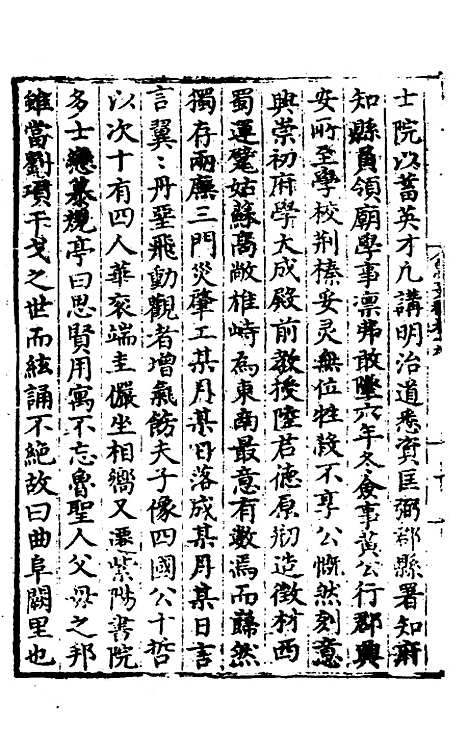 士院以蓄英才凡講明治道悉資匡弼郡縣署知府
知縣員領廟學事凛弗敢墜六年冬僉事黃公行郡興
安所至學校荆榛妥灵無位牲殽不享公慨然刻意
興崇初府學大成殿前教授陸君德原剏造徴材西
蜀運甓姑蘇髙敞雄峙為東南最意有數焉而巋然
獨存兩廡三門災肇工某月某日落成某月某日言
言翼〻丹堊飛動觀者增氣飭夫子像四國公十哲
以次十有四人華衮端圭儼坐相嚮又還紫陽書院
多士戀慕規亭曰思賢用寓不忘魯聖人父母之邦
雖當劉項干戈之世而絃誦不絶故曰曲阜闕里也